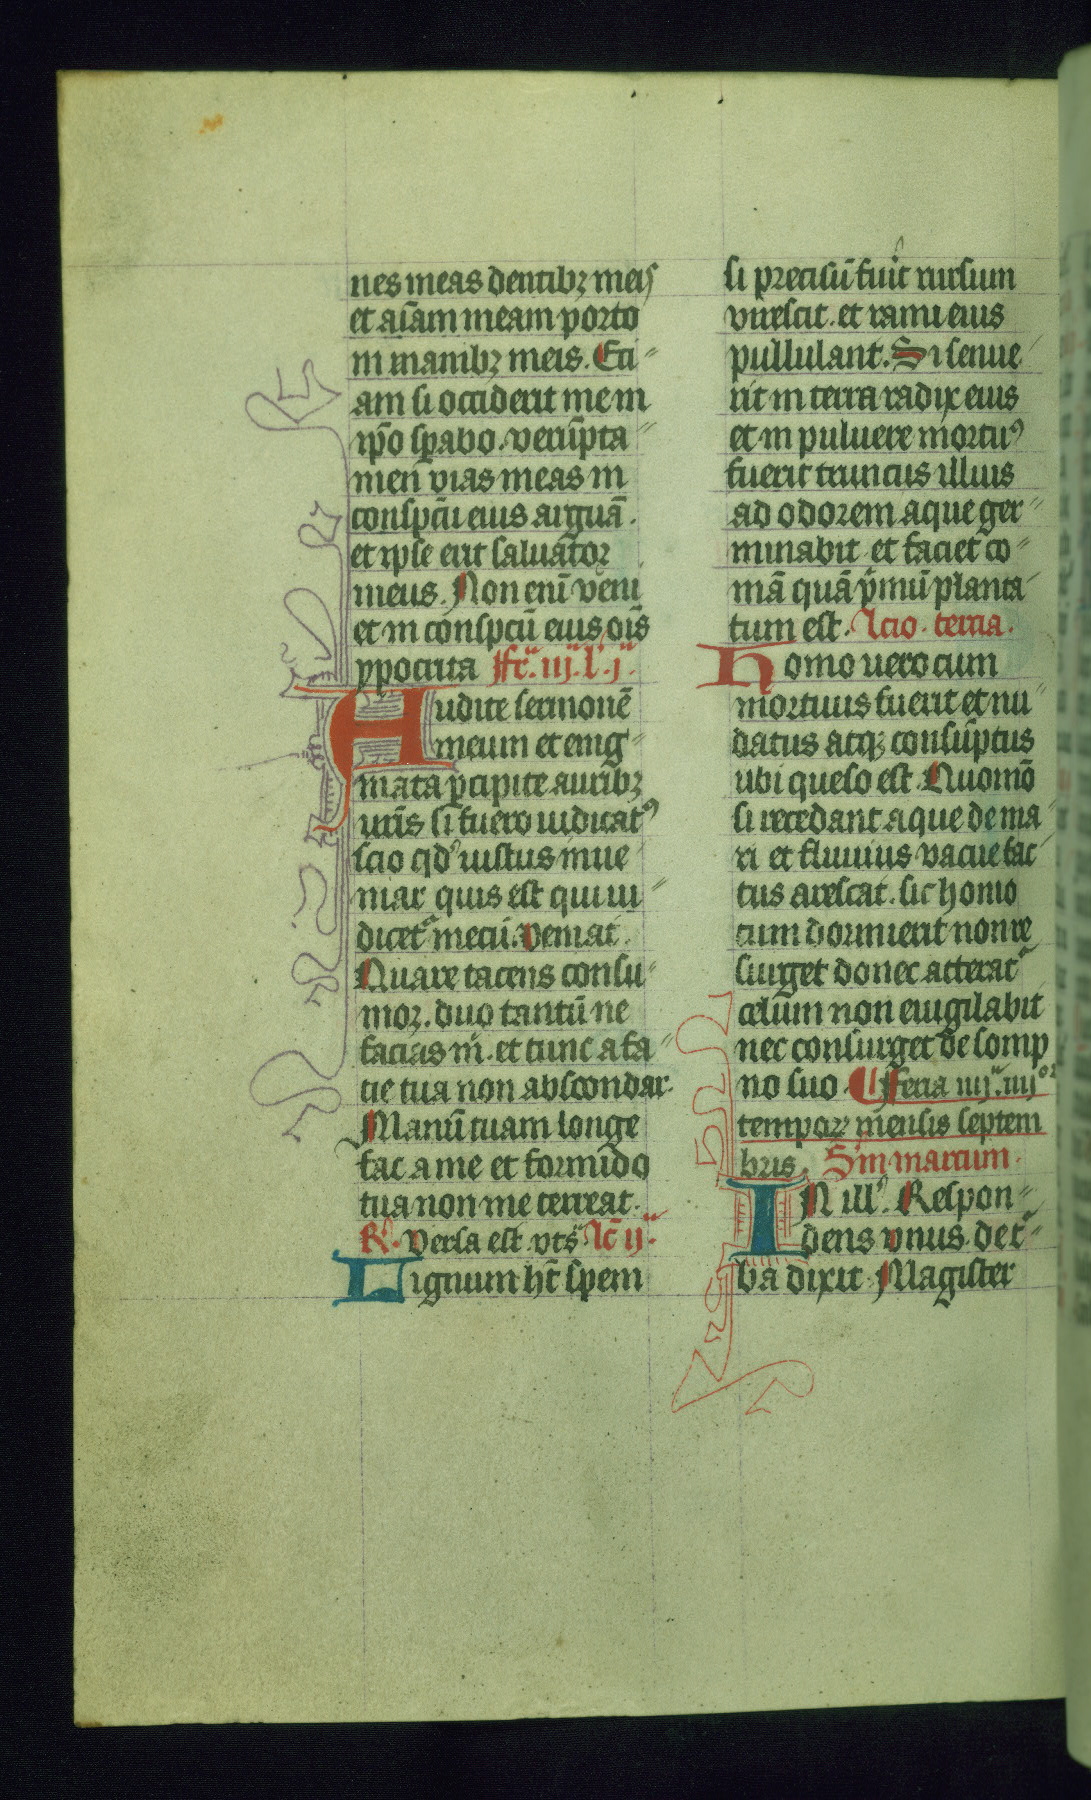 nes meas dentibꝫ meis
et aīam meam porto
in manibꝫ meis. Eci
am si occiderit me in
ip̄o sp̄abo. verūpta
men vias meas in
conspc̄u eius arguā.
et ipse erit saluator
meus. Non enī veni
et in conspc̄u eius oīs
ypocrita fr̄. iij. l. j.
Audite sermonē
meum et enig
mata p̄cipite auribꝫ
vr̄is si fuero iudicatꝰ
scio qd̓ iustus inue
niar quis est qui iu
dicet᷑ mecū. veniat.
Quare tacens consu
moꝛ. duo tantū ne
facias m̄. et tunc a fa
cie tua non abscondar.
Manū tuam longe
fac a me et formido
tua non me terreat.
R̓. Versa est. vts̄ lc̄ ij.
Lignum hт̄ spem
si precisū fuīt rursum
virescit. et rami eius
pullulant. Si senue
rit in terra radix eius
et in puluere mortuꝰ
fuerit truncus illius
ad odorem aque ger
minabit et faciet co
mā quā p̄mū planta
tum est. lcio. tercia.
Homo uero cum
mortuus fuerit et nu
datus atqꝫ consūptus
ubi queso est. Quomō
si recedant aque de ma
ri et fluuius vacue fac
tus arescat. sic homo
cum dormierit non re
surget donec atterat᷑
celum non euigilabit
nec consurget de somp
no suo. ¶ feria iiijᵃ. iiijᵒʳ
tempoꝝ mensis septem
bris. S̄m marcum.
IN ill̓. Respon
dens vnus. de t᷑
ba dixit Magister